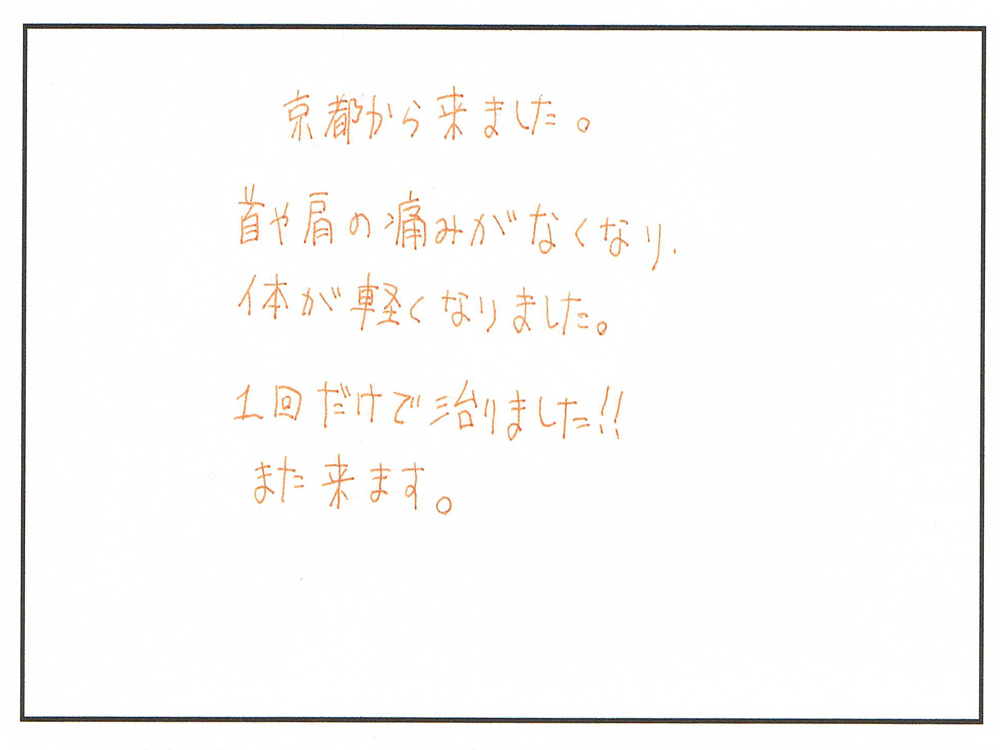 京都から来ました。
首や肩の痛みがなくなり、
体が軽くなりました。
1回だけで治りました!!
また来ます。